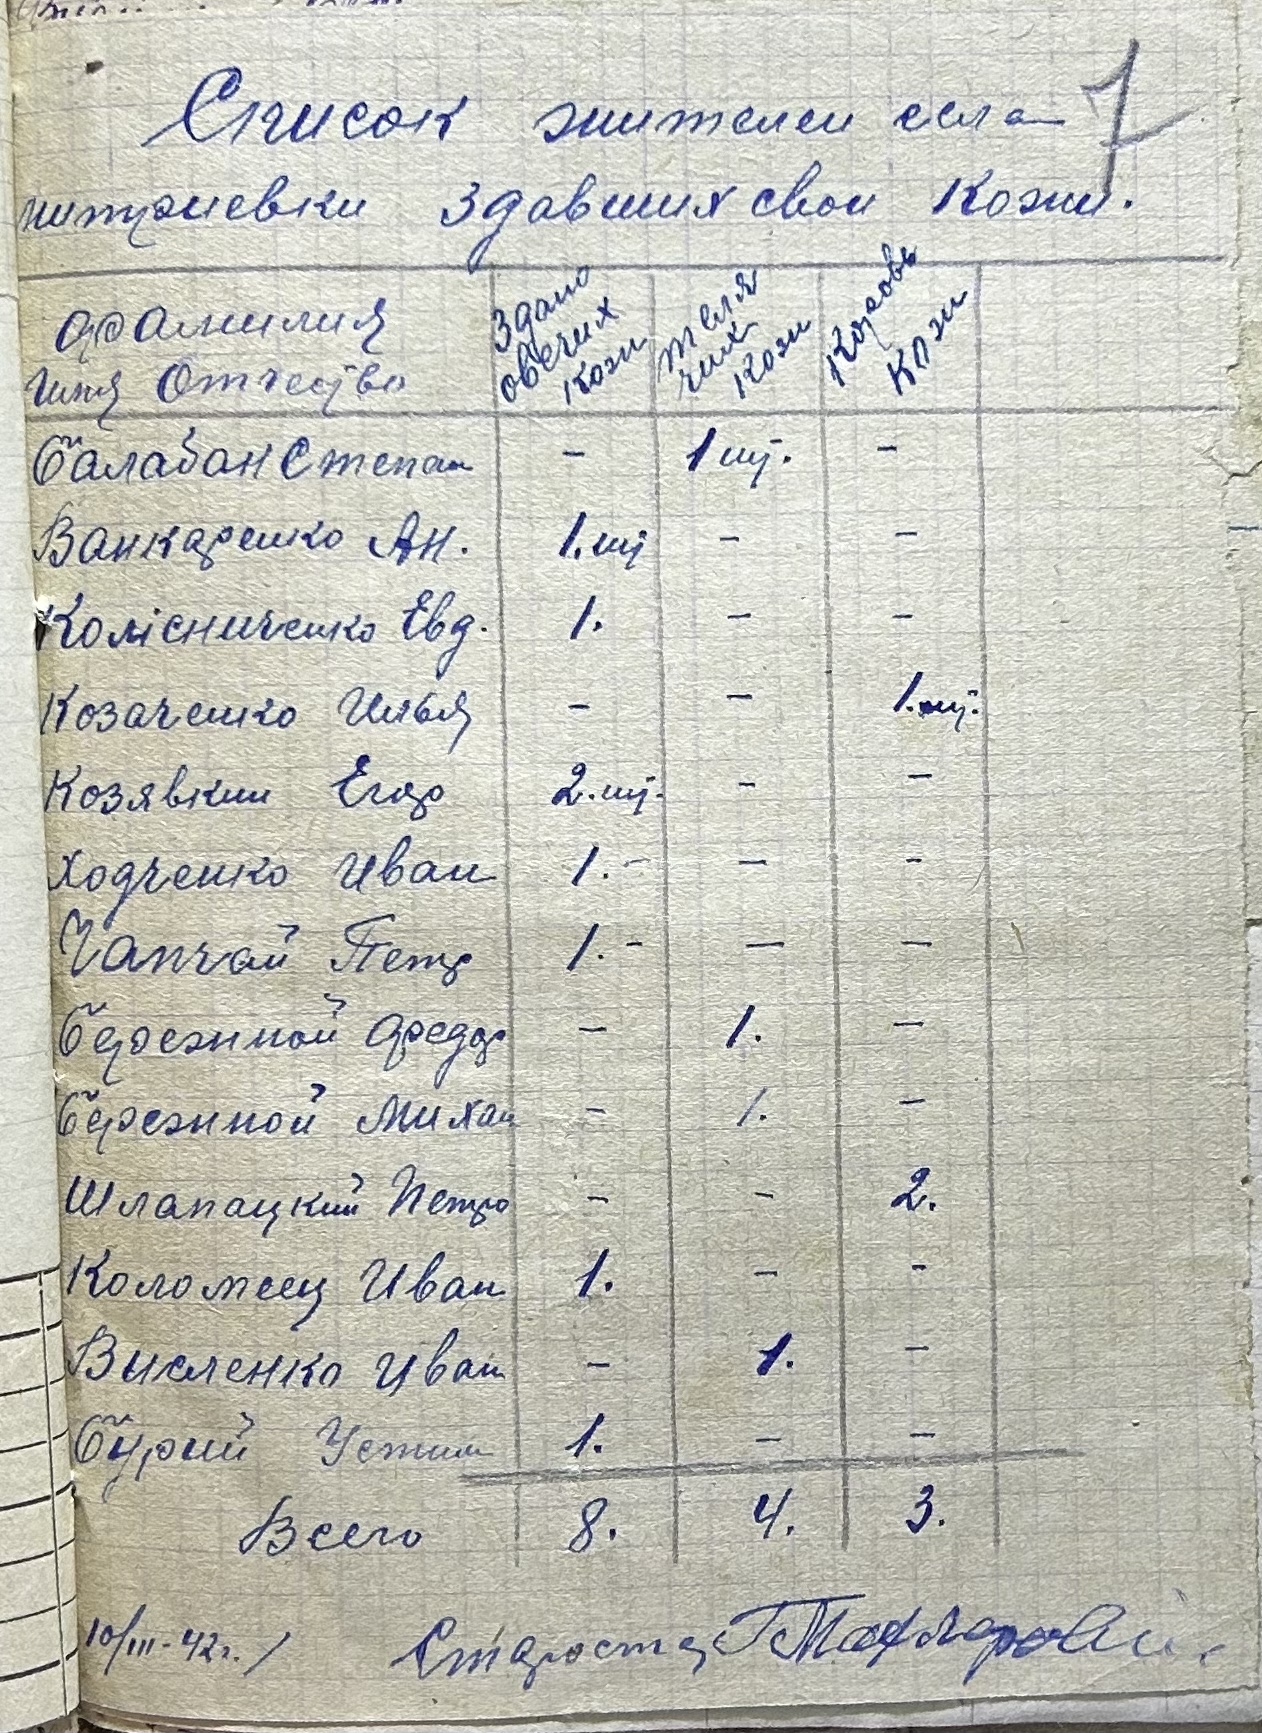 7
Список жителей села
здавших свои кожи.
фамилия имя Отчество | Здано овечих кожи | теля чих кожи | кожи
Балабан Степан - 1 шт. -
Ванжаренко Ан. 1. шт - -
Колісниченко Евд. 1. - -
Козаченко Илья - - 1. шт.
Козявкин Егор 2. шт. - -
Ходченко Иван 1. - - -
Чапчай Петр 1. - — —
Бережной Федор - 1. -
Бережной Михаи - 1. -
Шлапацкий Петро - - 2.
Коломеец Иван 1. - -
Висленко Иван - 1. -
Бурий Устим 1. - -
Всего 8. 4. 3.
10/III-42г. / Староста